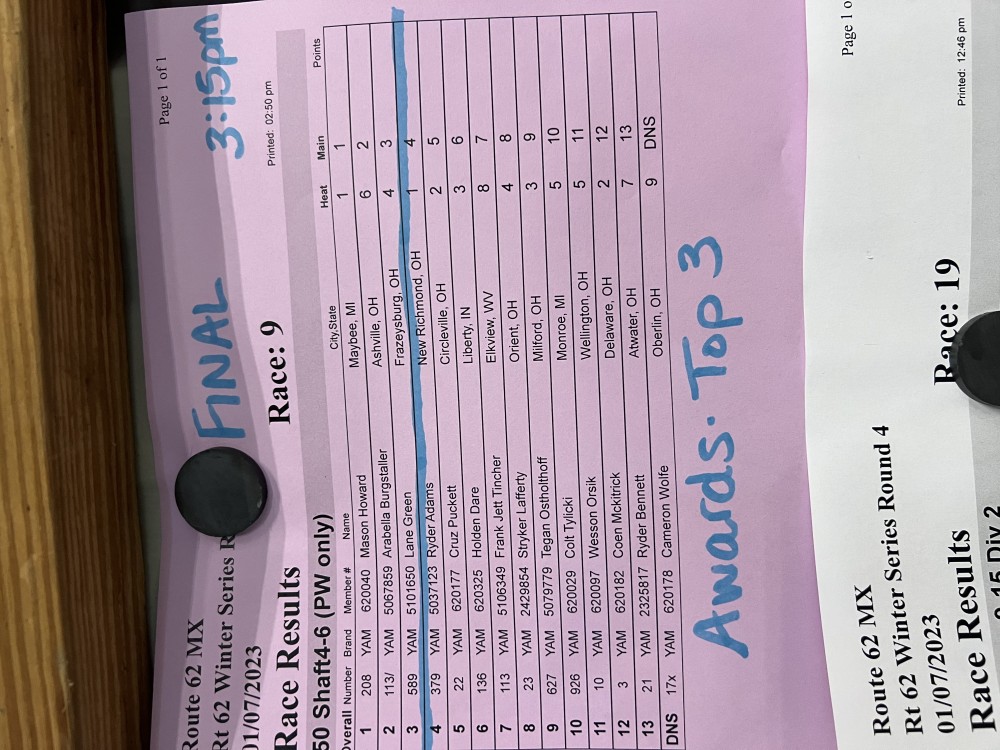 Page 1 of 1
FINAL 3:15pm
Route 62 MX
Rt 62 Winter Series R
01/07/2023
Printed: 02:50 pm
Race Results Race: 9
50 Shaft4-6 (PW only)
Overall Number Brand Member # Name City,State Heat Main Points
1 208 YAM 620040 Mason Howard Maybee, MI 1 1
2 113/ YAM 5067859 Arabella Burgstaller Ashville, OH 6 2
3 589 YAM 5101650 Lane Green Frazeysburg, OH 4 3
4 379 YAM 5037123 Ryder Adams New Richmond, OH 1 4
5 22 YAM 620177 Cruz Puckett Circleville, OH 2 5
6 136 YAM 620325 Holden Dare Liberty, IN 3 6
7 113 YAM 5106349 Frank Jett Tincher Elkview, WV 8 7
8 23 YAM 2429854 Stryker Lafferty Orient, OH 4 8
9 627 YAM 5079779 Tegan Ostholthoff Milford, OH 3 9
10 926 YAM 620029 Colt Tylicki Monroe, MI 5 10
11 10 YAM 620097 Wesson Orsik Wellington, OH 5 11
12 3 YAM 620182 Coen Mckitrick Delaware, OH 2 12
13 21 YAM 2325817 Ryder Bennett Atwater, OH 7 13
DNS 17x YAM 620178 Cameron Wolfe Oberlin, OH 9 DNS
Awards. Top 3
Page 1 o
Route 62 MX
Rt 62 Winter Series Round 4
01/07/2023
Printed: 12:46 pm
Race Results Race: 19
15 Div 2